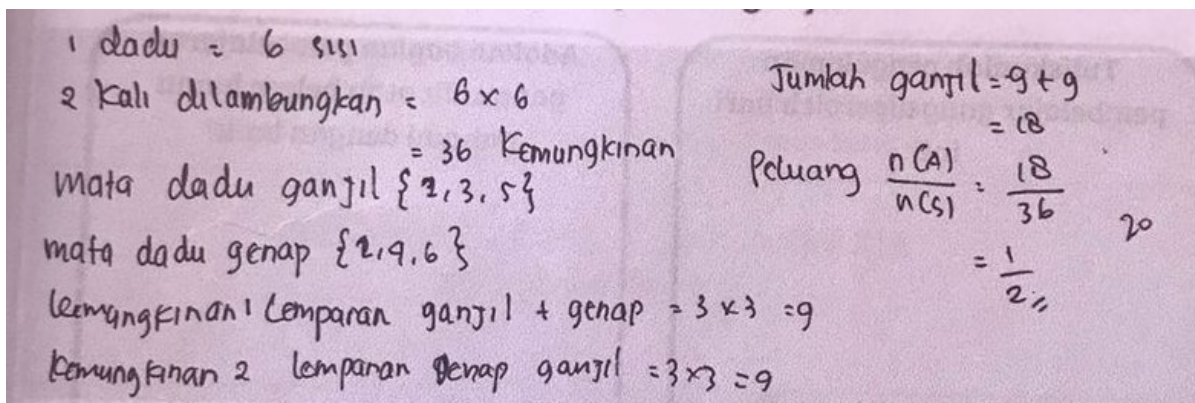 1 dadu = 6 sisi
2 kali dilambungkan = 6 x 6
= 36 kemungkinan
mata dadu ganjil {1, 3, 5}
mata dadu genap {2, 4, 6}
kemungkinan 1 lemparan ganjil + genap = 3 x 3 = 9
kemungkinan 2 lemparan genap ganjil = 3 x 3 = 9
Jumlah ganjil = 9 + 9
= 18
Peluang n(A)/n(S) = 18/36
= 1/2 //
20